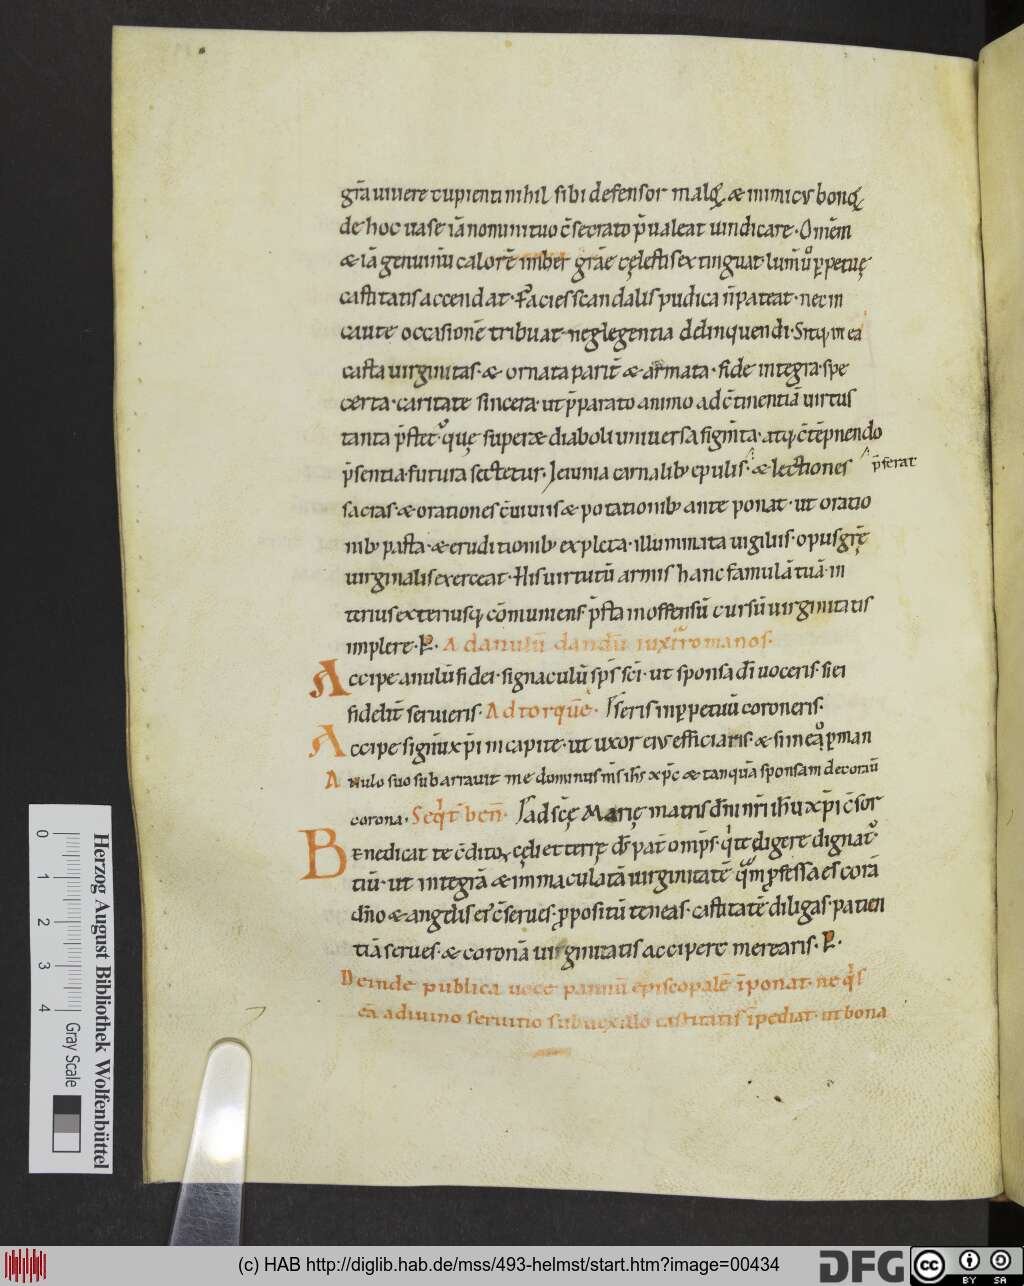 gr̄a uiuere cupienti nihil sibi defensor maloꝝ. & inimicꝰ bonoꝝ
de hoc uase iā non ini tuo c̄secrato p̄ualeat uindicare. Om̄em
& iā genuinū calorē imber gr̄ae cęlestis extinguat. lum̄ u͛o ꝑpetuę
castitatis accendat. Facies scandalis pudica n̄ pateat. nec in
caute occasionē tribuat neglegentia delinquendi. Sitq; in ea
casta uirginitas. & ornata parit̄ & armata. fide integra. spe
certa. caritate sincera. ut p̄parato animo ad c̄tinentiā uirtus
tanta p̄stet͛. quę superæ diaboli uniuersa figm̄ta. atq; c̄tēpnendo
p̄sentia. futura sectetur. Ieiunia carnalib; epulis. & lectiones p̄ferat
sacras. & orationes c̄uiuiis & potationib; ante ponat. ut oratio
nib; pasta. & eruditionib; expleta. illuminata uigiliis. opus grę̄
uirginalis exerceat. His uirtutū armis hanc famulā tuā. in
terius exteriusq; cōmuniens. p̄sta inoffensū cursū uirginitatis
implere. P̲. Ad anulū dandū iuxͣ romanos.
Accipe anulū fidei. signaculū sp̄s sc̄i. ut sponsa dī uoceris. si ei
fidelit̄ seruieris. Ad torquē. / seris in ꝑpetuū coroneris.
Accipe signū xp̄i in capite. ut uxor eiꝰ efficiaris. & si in eo ꝑman
Anulo suo subarrauit me dominus m̄s ih̄s xp̄c & tanquā sponsam decorauit
corona. Seqͥt͛ ben̄. / ad sc̄ę Marię matris dn̄i nr̄i ih̄u xp̄i c̄sor
Benedicat te c̄ditor cęli et terrę ds̄ pat̄ om̄ps. qͥ te eligere dignat͛
tiū. ut integrā & immaculatā uirginitatē qͣm ꝓfessa es corā
dn̄o & angelis eiꝰ c̄serues. ꝓpositū teneas. castitatē diligas. patien
tiā serues. & coronā uirginitatis accipere merearis. P̲.
Deinde publica uoce pannū episcopalē īponat. ne qͥs
eā a diuino seruitio sub uexillo castitatis īpediat. ut bona
Herzog August Bibliothek Wolfenbüttel
Gray Scale
0 1 2 3 4
(c) HAB http://diglib.hab.de/mss/493-helmst/start.htm?image=00434
DFG
cc BY SA